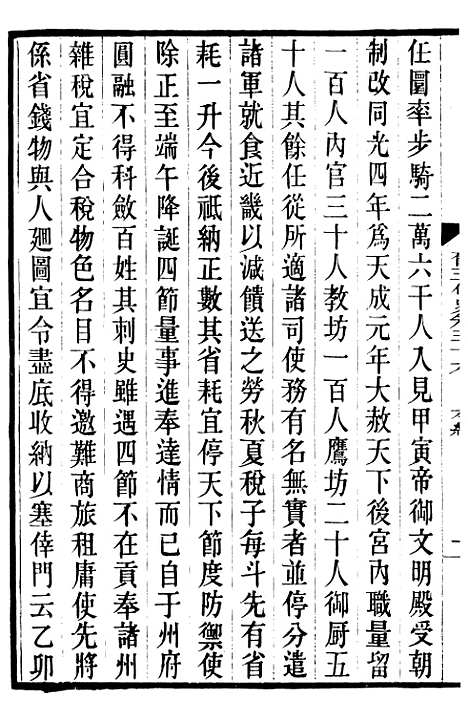 任圜率步騎二萬六千人入見甲寅帝御文明殿受朝
制改同光四年爲天成元年大赦天下後宮內職量留
一百人內官三十人教坊一百人鷹坊二十人御厨五
十人其餘任從所適諸司使務有名無實者並停分遣
諸軍就食近畿以減饋送之勞秋夏稅子每斗先有省
耗一升今後祇納正數其省耗宜停天下節度防禦使
除正至端午降誕四節量事進奉達情而已自于州府
圓融不得科斂百姓其刺史雖遇四節不在貢奉諸州
雜稅宜定合稅物色名目不得邀難商旅租庸使先將
係省錢物與人廻圖宜令盡底收納以塞倖門云乙卯